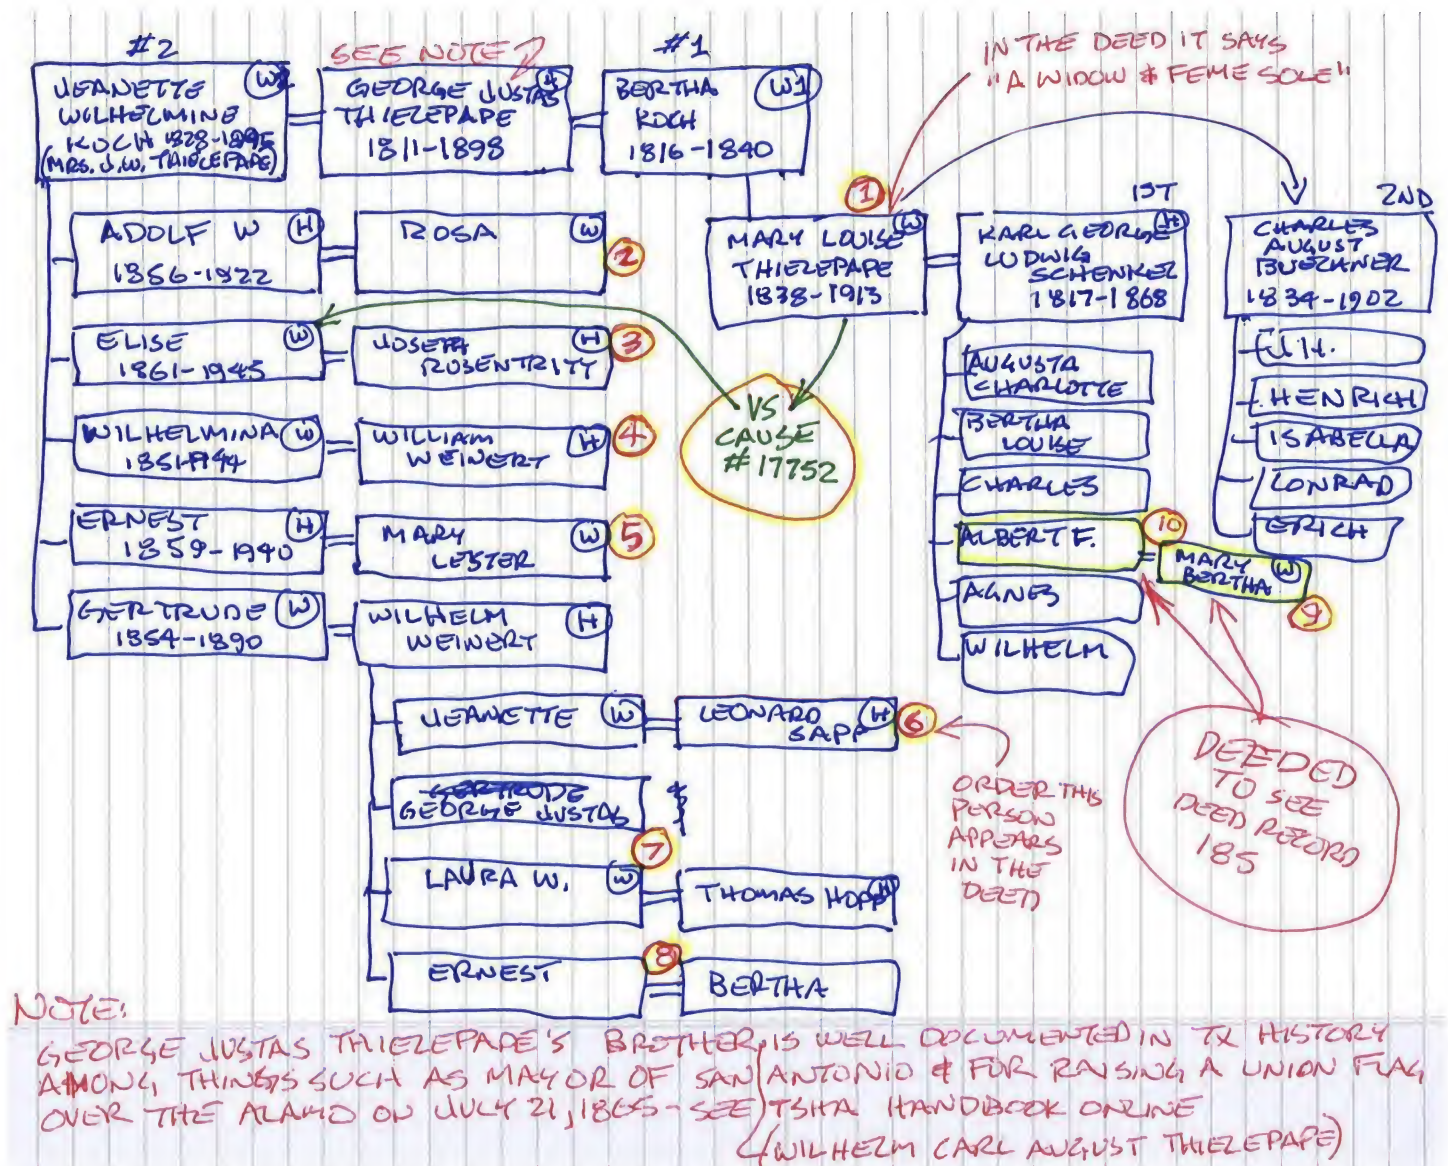 #2
JEANETTE
WILHELMINE
KOCH 1828-1895
(MRS. J.W. THIELEPAPE)
SEE NOTE
GEORGE JUSTAS
THIELEPAPE
1811-1898
#1
BERTHA
KOCH
1816-1840
W1
IN THE DEED IT SAYS
"A WIDOW & FEME SOLE"
ADOLF W
1856-1922
H
ROSA
W
2
1
MARY LOUISE
THIELEPAPE
1838-1913
W
1ST
KARL GEORGE
LUDWIG
SCHENKEL
1817-1868
H
2ND
CHARLES
AUGUST
BUECHNER
1834-1902
ELISE
1861-1945
W
JOSEPH
ROSENTRITT
H
3
WILHELMINA
1851-1944
W
WILLIAM
WEINERT
H
4
VS
CAUSE
#17752
ERNEST
1859-1940
H
MARY
LESTER
W
5
GERTRUDE
1854-1890
W
WILHELM
WEINERT
H
AUGUSTA
CHARLOTTE
BERTHA
LOUISE
CHARLES
ALBERT F.
10
MARY
BERTHA
W
9
AGNES
WILHELM
HENRICH
ISABELLA
CONRAD
ERICH
JEANETTE
W
LEONARD
SAPP
H
6
GEORGE JUSTAS
7
LAURA W.
W
THOMAS HOPP
H
ERNEST
8
BERTHA
ORDER THIS
PERSON
APPEARS
IN THE
DEED
DEEDED
TO SEE
DEED RECORD
185
NOTE:
GEORGE JUSTAS THIELEPAPE'S BROTHER, IS WELL DOCUMENTED IN TX HISTORY
AMONG THINGS SUCH AS MAYOR OF SAN ANTONIO & FOR RAISING A UNION FLAG
OVER THE ALAMO ON JULY 21, 1865 - SEE TSHA HANDBOOK ONLINE
(WILHELM CARL AUGUST THIELEPAPE)